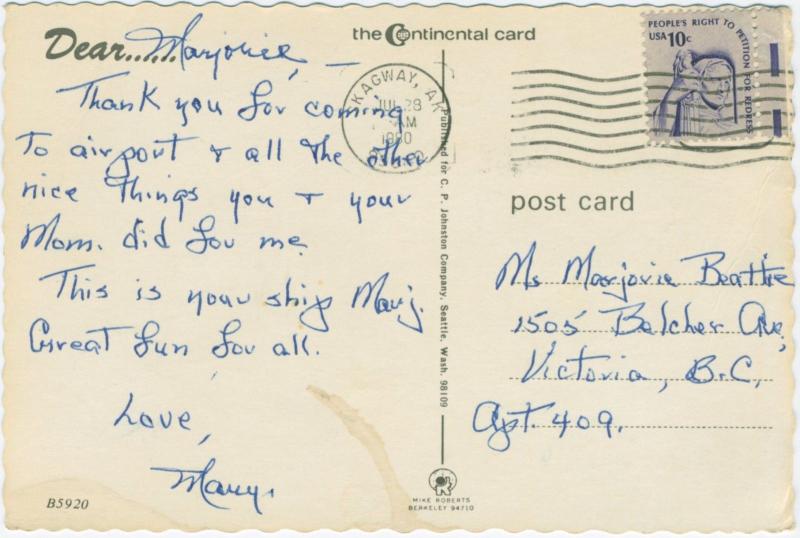 Dear...... Marjorie, —
Thank you for coming
to airport & all the other
nice things you & your
Mom. did for me.
This is your ship Marj.
Great fun for all.
Love,
Mary.
B5920
the Continental card
SKAGWAY, AK
JUL 28
AM
1980
Published for C. P. Johnston Company, Seattle, Wash. 98109
MIKE ROBERTS
BERKELEY 94710
PEOPLE'S RIGHT TO PETITION FOR REDRESS
USA 10c
post card
Ms Marjorie Beattie
1505 Belcher Ave,
Victoria, B.C,
Apt. 409.